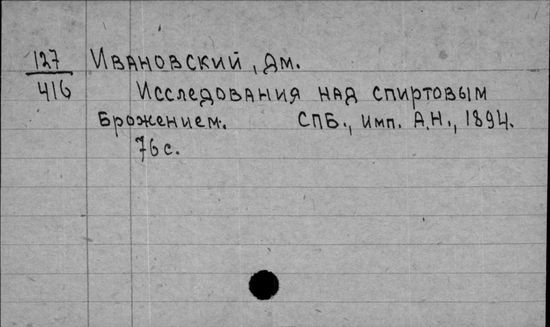 127 Ивановский, Дм.
416 Исследования над спиртовым
брожением. СПБ., имп. А.Н., 1894.
76 с.